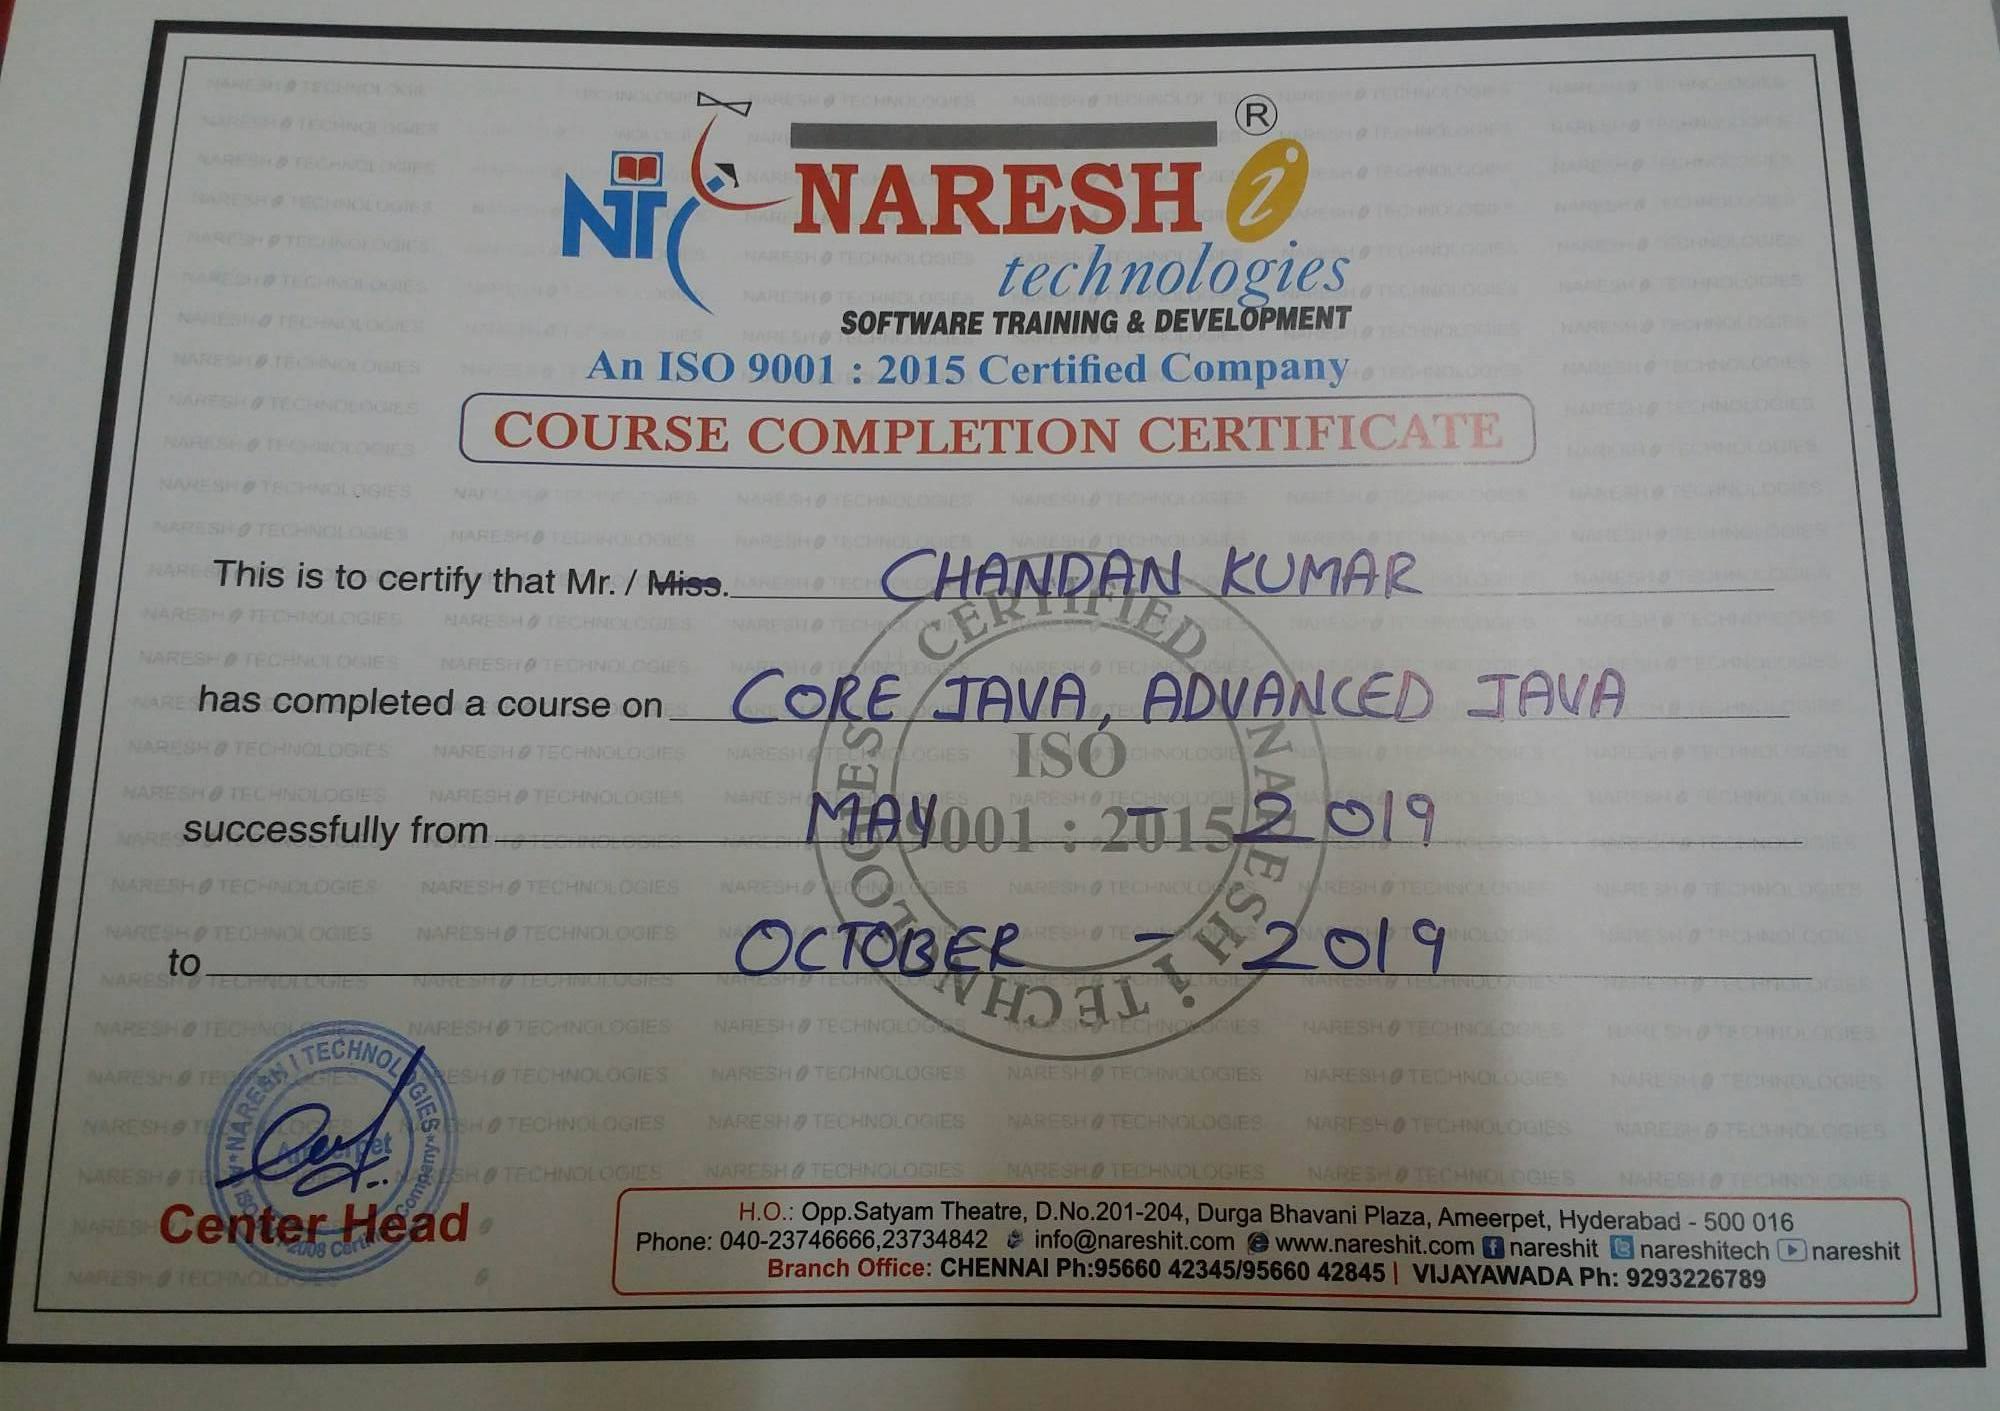 NARESH i ®
NTC
technologies
SOFTWARE TRAINING & DEVELOPMENT
An ISO 9001 : 2015 Certified Company
COURSE COMPLETION CERTIFICATE
This is to certify that Mr. / Miss. CHANDAN KUMAR
has completed a course on CORE JAVA, ADVANCED JAVA
successfully from MAY - 2019
to OCTOBER - 2019
CERTIFIED NARESH i TECHNOLOGIES
ISO
9001 : 2015
NARESH I TECHNOLOGIES
Ameerpet
Center Head
H.O.: Opp.Satyam Theatre, D.No.201-204, Durga Bhavani Plaza, Ameerpet, Hyderabad - 500 016
Phone: 040-23746666,23734842 info@nareshit.com www.nareshit.com nareshit nareshitech nareshit
Branch Office: CHENNAI Ph:95660 42345/95660 42845 | VIJAYAWADA Ph: 9293226789